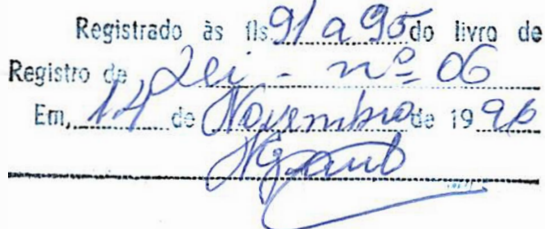 Registrado às fls 91 a 95 do livro de
Registro de Lei - nº 06
Em, 14 de Novembro de 1996